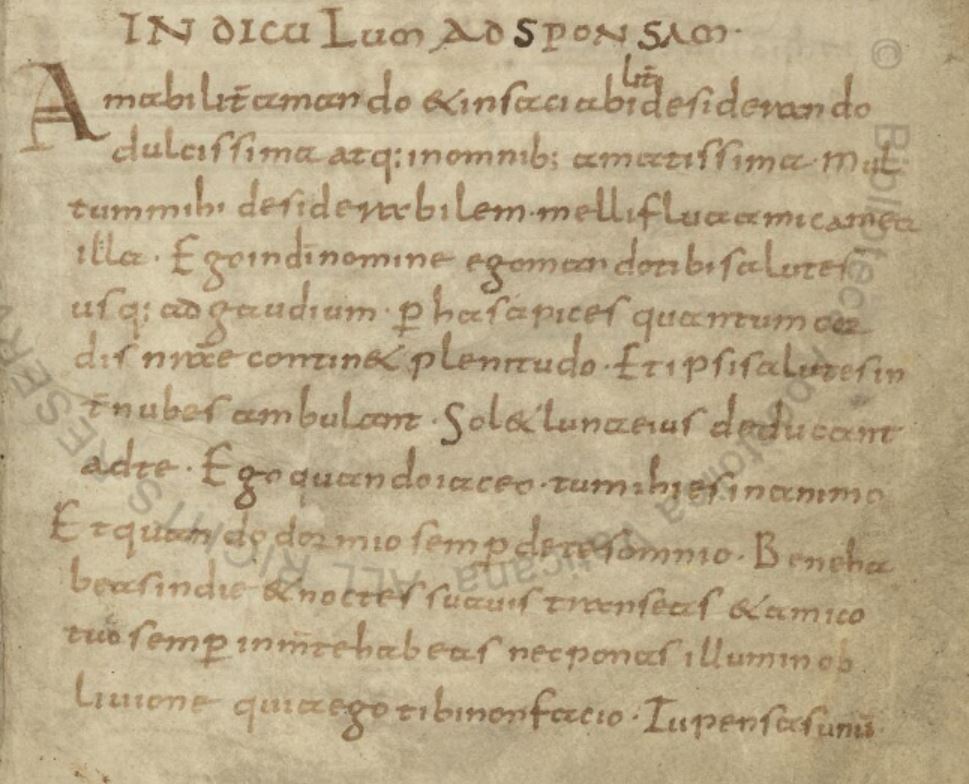 INDICULUM AD SPONSAM.
Amabilit̄ amando & insaciabilit̄ desiderando
dulcissima atq; inomnib; amatissima. Mul
tum mihi desiderabilem. melliflua amica mea
illa. Ego indī nomine ego mando tibi salutes
usq; ad gaudium. p̲ has apices quantum cor
dis nr̄ae contin& plenitudo. Et ipsi salutes in
t̄ nubes ambulant. Sol & luna eius deducant
ad te. Ego quando iaceo. tu mihi es in animo
Et quando dormio semp̲ de te somnio. Bene ha
beas in die & noctes suavis transeas & amico
tuo semp̲ in m̄te habeas nec ponas illum in ob
livione quia ego tibi non facio. Tu pensas unū
© Biblioteca Apostolica Vaticana ALL RIGHTS RESERV